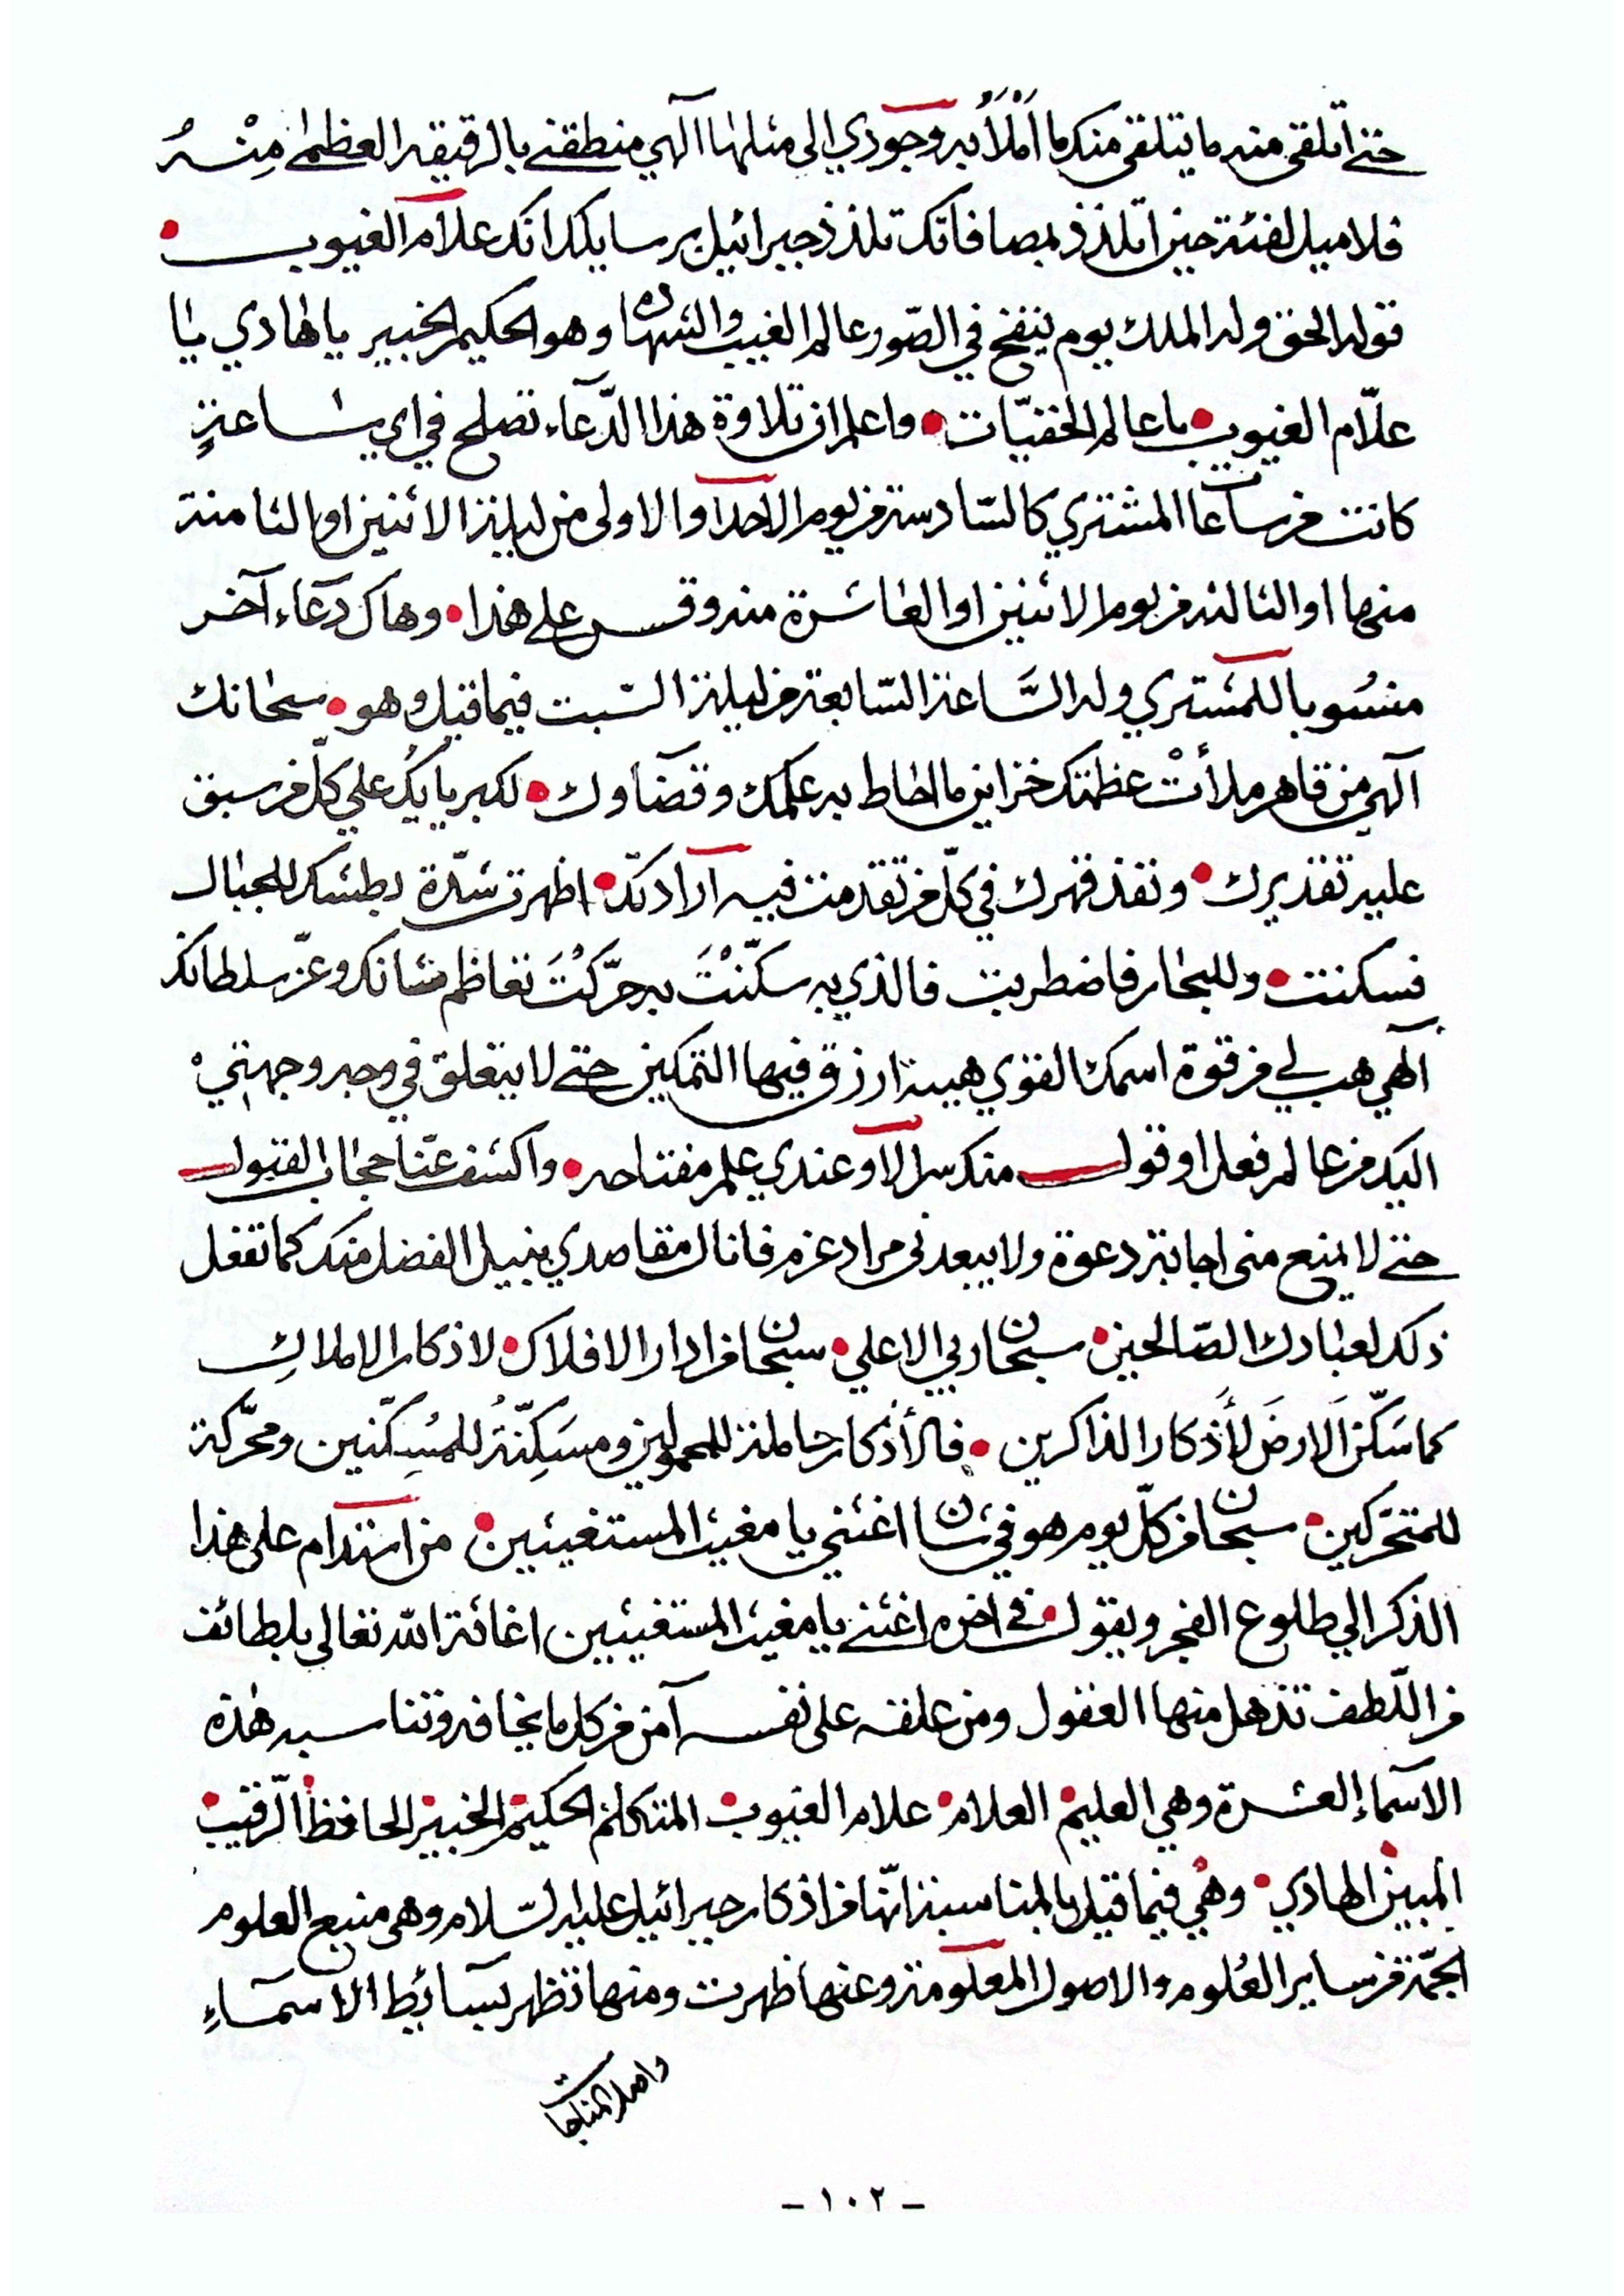 حتى اتلقى منه ما يتلقى منك ما أمْلَأُ به وجودي الى مثلها آلهي منطقني بالرقيقه العظمىٰ مِنْهُ
فلا ميل لفئة حين اتلذذ بمصافاتك تلذذ جبرائيل برسايلك انك علاّم الغيوب •
قوله الحق وله الملك يوم ينفخ في الصّور عالم الغيب والشهادة وهو الحكيم الخبير يا هادي يا
علّام الغيوب • يا عالم الخفيّات • واعلم ان تلاوة هذا الدّعآء تصلح في اي ساعةٍ
كانت من ساعات المشتري كالسّادسة من يوم الاحد آو الاولى من ليلة الاثنين او الثامنة
منها او الثالثه من يوم الاثنين او العاشرة منه وقس على هذا • وهاك دعآء آخر
منسُوبا للمشتري وله السَّاعة السّابعة من ليلة السّبت فيما قيل وهو • سبحانك
آلهي من قاهر ملأتْ عظمتك خزاين ما احاط به علمك وقضآوك • لكبريايك علي كلّ من سبق
عليه تقديرك • ونفذ قهرك في كلّ من تقدمت فيه آرادتك • اظهرت شدّة بطشك للجبال
فسكنت • وللبحار فاضطربت فالذي به سكّنْتَ به حرّكْتَ تعاظم شانك وعزّ سلطانك
آلهي هب لي من قوة اسمك القوي هيبة ارزق فيها التمكين حتى لا يتعلق في وجه وجهتي
اليك من عالم فعل او قول منك سر الآ وعندي علم مفتاحه • واكشف عنّا حجاب القبول
حتى لا يمنع منى اجابة دعوة ولا يبعد لى مراد عزم فانال مقاصدي بنيل الفضل منك كما تفعل
ذلك لعبادك الصّالحين • سبحان ربي الاعلي • سبحان من ادار الافلاك • لاذكار الاملاكِ
كما سَكّن الارضَ لأَذكار الذاكرين • فالأذكار حاملة للمحمولين ومسَكِنّةُ للمُسِكّنين ومحرّكة
للمتحّركين • سبحان من كلّ يوم هو في شان اغثني يا مغيث المستغيثين • من استدام على هذا
الذكر الي طلوع الفجر ويقول • في اخره اغثنى يا مغيث المستغيثين اغاثة الله تعالى بلطائف
من اللّطف تذهل منها العقول ومن علقه على نفسه آمن من كل ما يخافه وتناسبه هٰذه
الآسماء العشرة وهي العليم • العلام • علام الغيوب • المتكلم • الحكيم • الخبير • الحافظ • الرّقيب •
المبين • الهادي • وهي فيما قيل بالمناسبة انّها من اذكار جبرائيل عليه السّلام وهى منبع العلوم
الجمّة من ساير العُلوم والاصول المعلومة وعنها ظهرت ومنها تظهر بسآئط الآسمآءِ
واصل المناجات
- ١٠٢ -